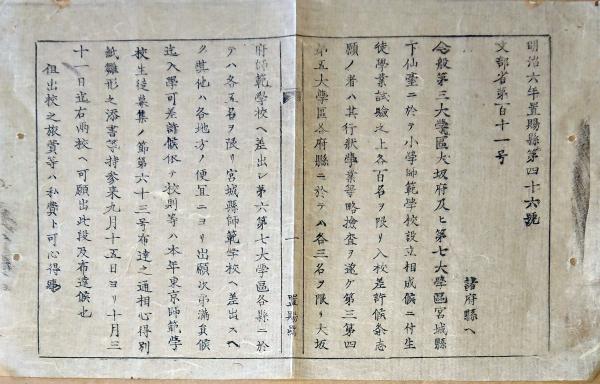 明治六年置賜縣第四十六號
文部省第百十一号
諸府縣ヘ
今般第三大学區大坂府及ヒ第七大学區宮城縣
下仙臺ニ於テ小学師範学校設立相成候ニ付生
徒学業試驗之上各百名ヲ限リ入校差許候条志
願ノ者ハ其行狀学業等略検査ヲ遂ケ第三第四
第五大学區各府縣ニ於テハ各三名ヲ限リ大坂
府師範学校ヘ差出シ第六第七大学區各縣ニ於
テハ各五名ヲ限リ宮城縣師範学校ヘ差出スヘ
ク其他ハ各地方ノ便宜ニヨリ出願次第滿員候
迄入学可差許候依テ校則等ハ本年東京師範学
校生徒募集ノ節第六十三号布達之通相心得別
紙雛形之添書等持参来九月十五日ヨリ十月三
十一日迄右兩校ヘ可願出此段及布達候也
但出校之旅費等ハ私費ト可心得事
一
置賜縣